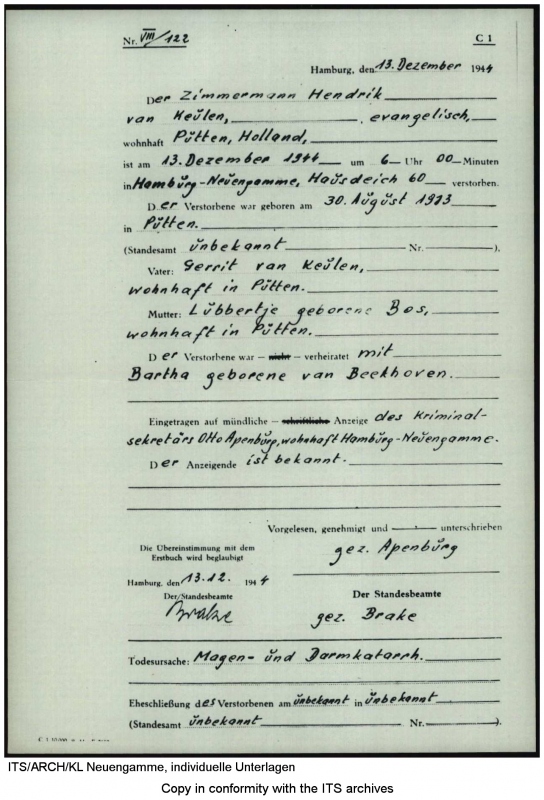 Nr. VIII/122 C 1
Hamburg, den 13. Dezember 1944
Der Zimmermann Hendrik
van Keŭlen, , evangelisch,
wohnhaft Pŭtten, Holland,
ist am 13. Dezember 1944 um 6 Uhr 00 Minuten
in Hamburg-Neuengamme, Haŭsdeich 60 verstorben.
Der Verstorbene war geboren am 30. Aŭgŭst 1913
in Pŭtten.
(Standesamt ŭnbekannt Nr. ).
Vater: Gerrit van Keŭlen,
wohnhaft in Pŭtten.
Mutter: Lŭbbertje geborene Bos,
wohnhaft in Pŭtten.
Der Verstorbene war – nicht – verheiratet mit
Bartha geborene van Beekhoven.
Eingetragen auf mündliche – schriftliche Anzeige des Kriminal-
sekretärs Otto Apenbŭrg, wohnhaft Hambŭrg-Neŭengamme.
Der Anzeigende ist bekannt.
Vorgelesen, genehmigt und unterschrieben
Die Übereinstimmung mit dem
Erstbuch wird beglaubigt
gez. Apenbŭrg
Hamburg, den 13.12. 1944
Der Standesbeamte
Brake
Der Standesbeamte
gez. Brake
Todesursache: Magen- ŭnd Darmkatarrh.
Eheschließung des Verstorbenen am ŭnbekannt in ŭnbekannt
(Standesamt ŭnbekannt Nr. ).
ITS/ARCH/KL Neuengamme, individuelle Unterlagen
Copy in conformity with the ITS archives